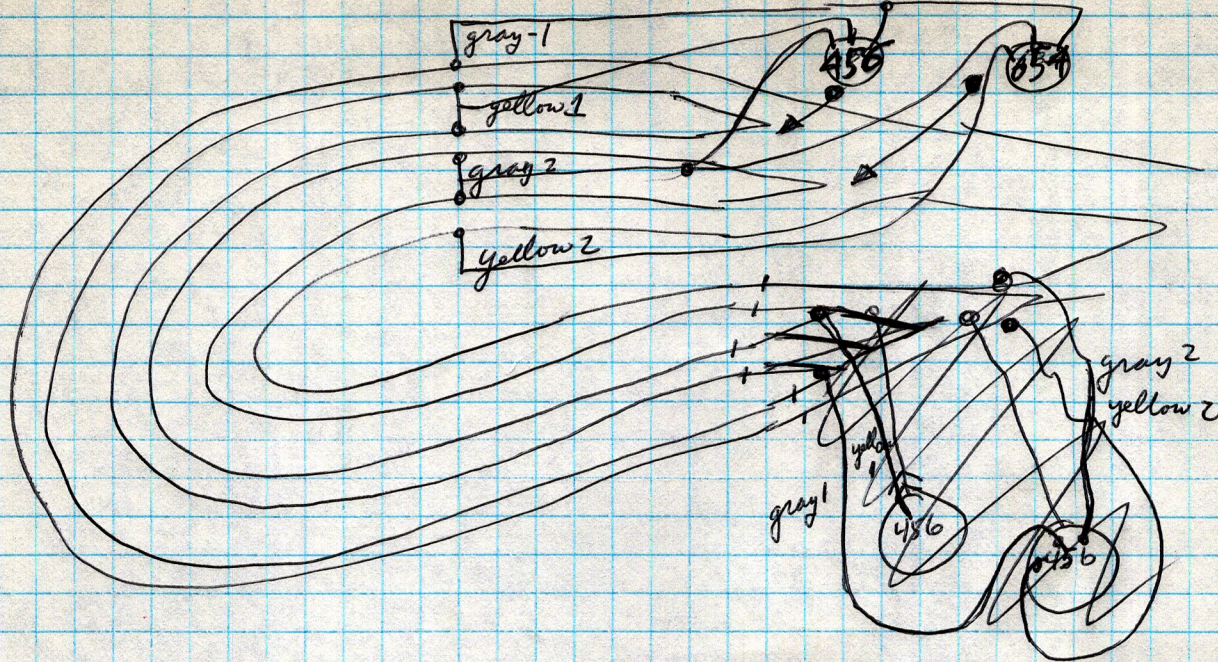 gray-1
456
654
yellow 1
gray 2
yellow 2
gray 2
yellow 2
yellow
1
gray 1
456
456